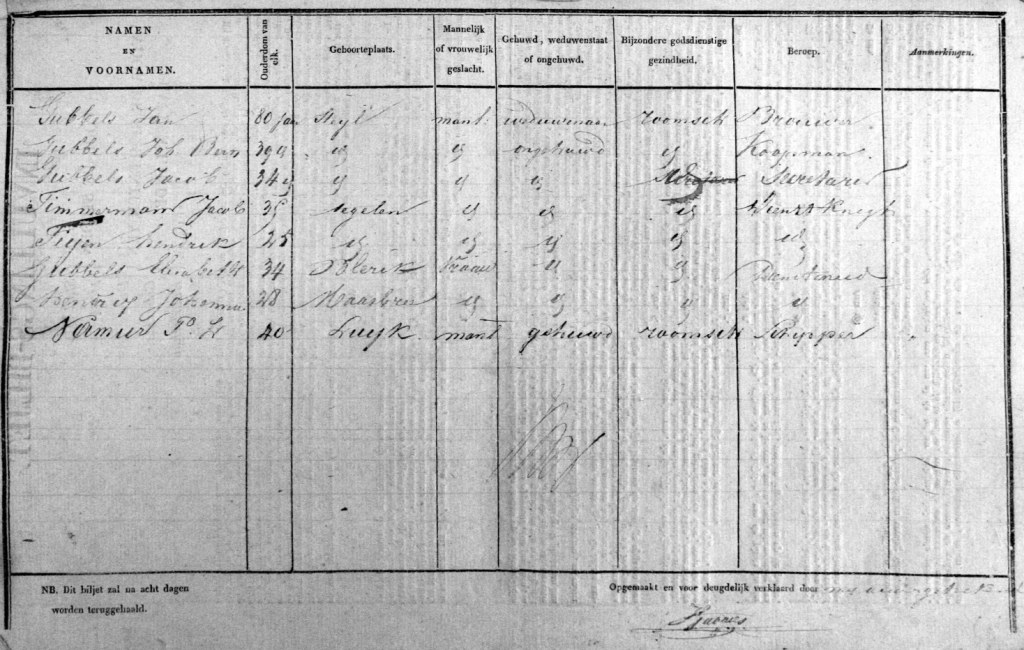 NAMEN EN VOORNAMEN. Ouderdom van elk. Geboorteplaats. Mannelijk of vrouwelijk geslacht. Gehuwd, weduwenstaat of ongehuwd. Bijzondere godsdienstige gezindheid. Beroep. Aanmerkingen.
Gubbels Jan 80 jar Steyl mant weduwenaar roomsch Brouwer
Gubbels Joh Bern 39 ongehuwd Koopman
Gubbels Jacob 34 Secretaris
Timmermans Jacob 35 tegelen Dienstknegt
Tigen hendrik 25
Gubbels Elisabeth 34 Blerik vrouw Dienstmeid
Johanna 28 Maasbree
T. H 40 Luyk mant gehuwd roomsch Schipper
NB. Dit biljet zal na acht dagen
worden teruggehaald.
Opgemaakt en voor deugdelijk verklaard door